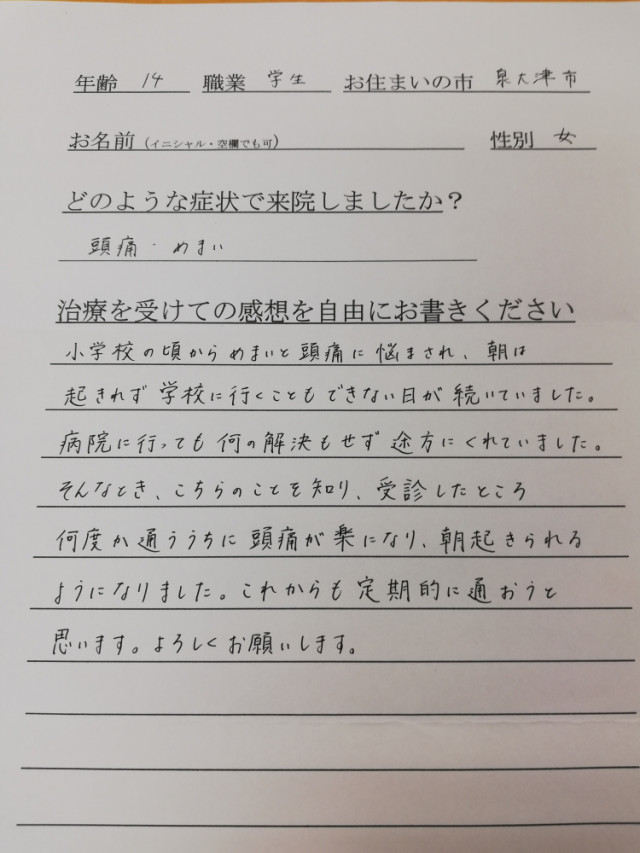 年齢 14 職業 学生 お住まいの市 泉大津市
お名前(イニシャル・空欄でも可) 性別 女
どのような症状で来院しましたか？
頭痛・めまい
治療を受けての感想を自由にお書きください
小学校の頃からめまいと頭痛に悩まされ、朝は
起きれず学校に行くこともできない日が続いていました。
病院に行っても何の解決もせず途方にくれていました。
そんなとき、こちらのことを知り、受診したところ
何度か通ううちに頭痛が楽になり、朝起きられる
ようになりました。これからも定期的に通おうと
思います。よろしくお願いします。